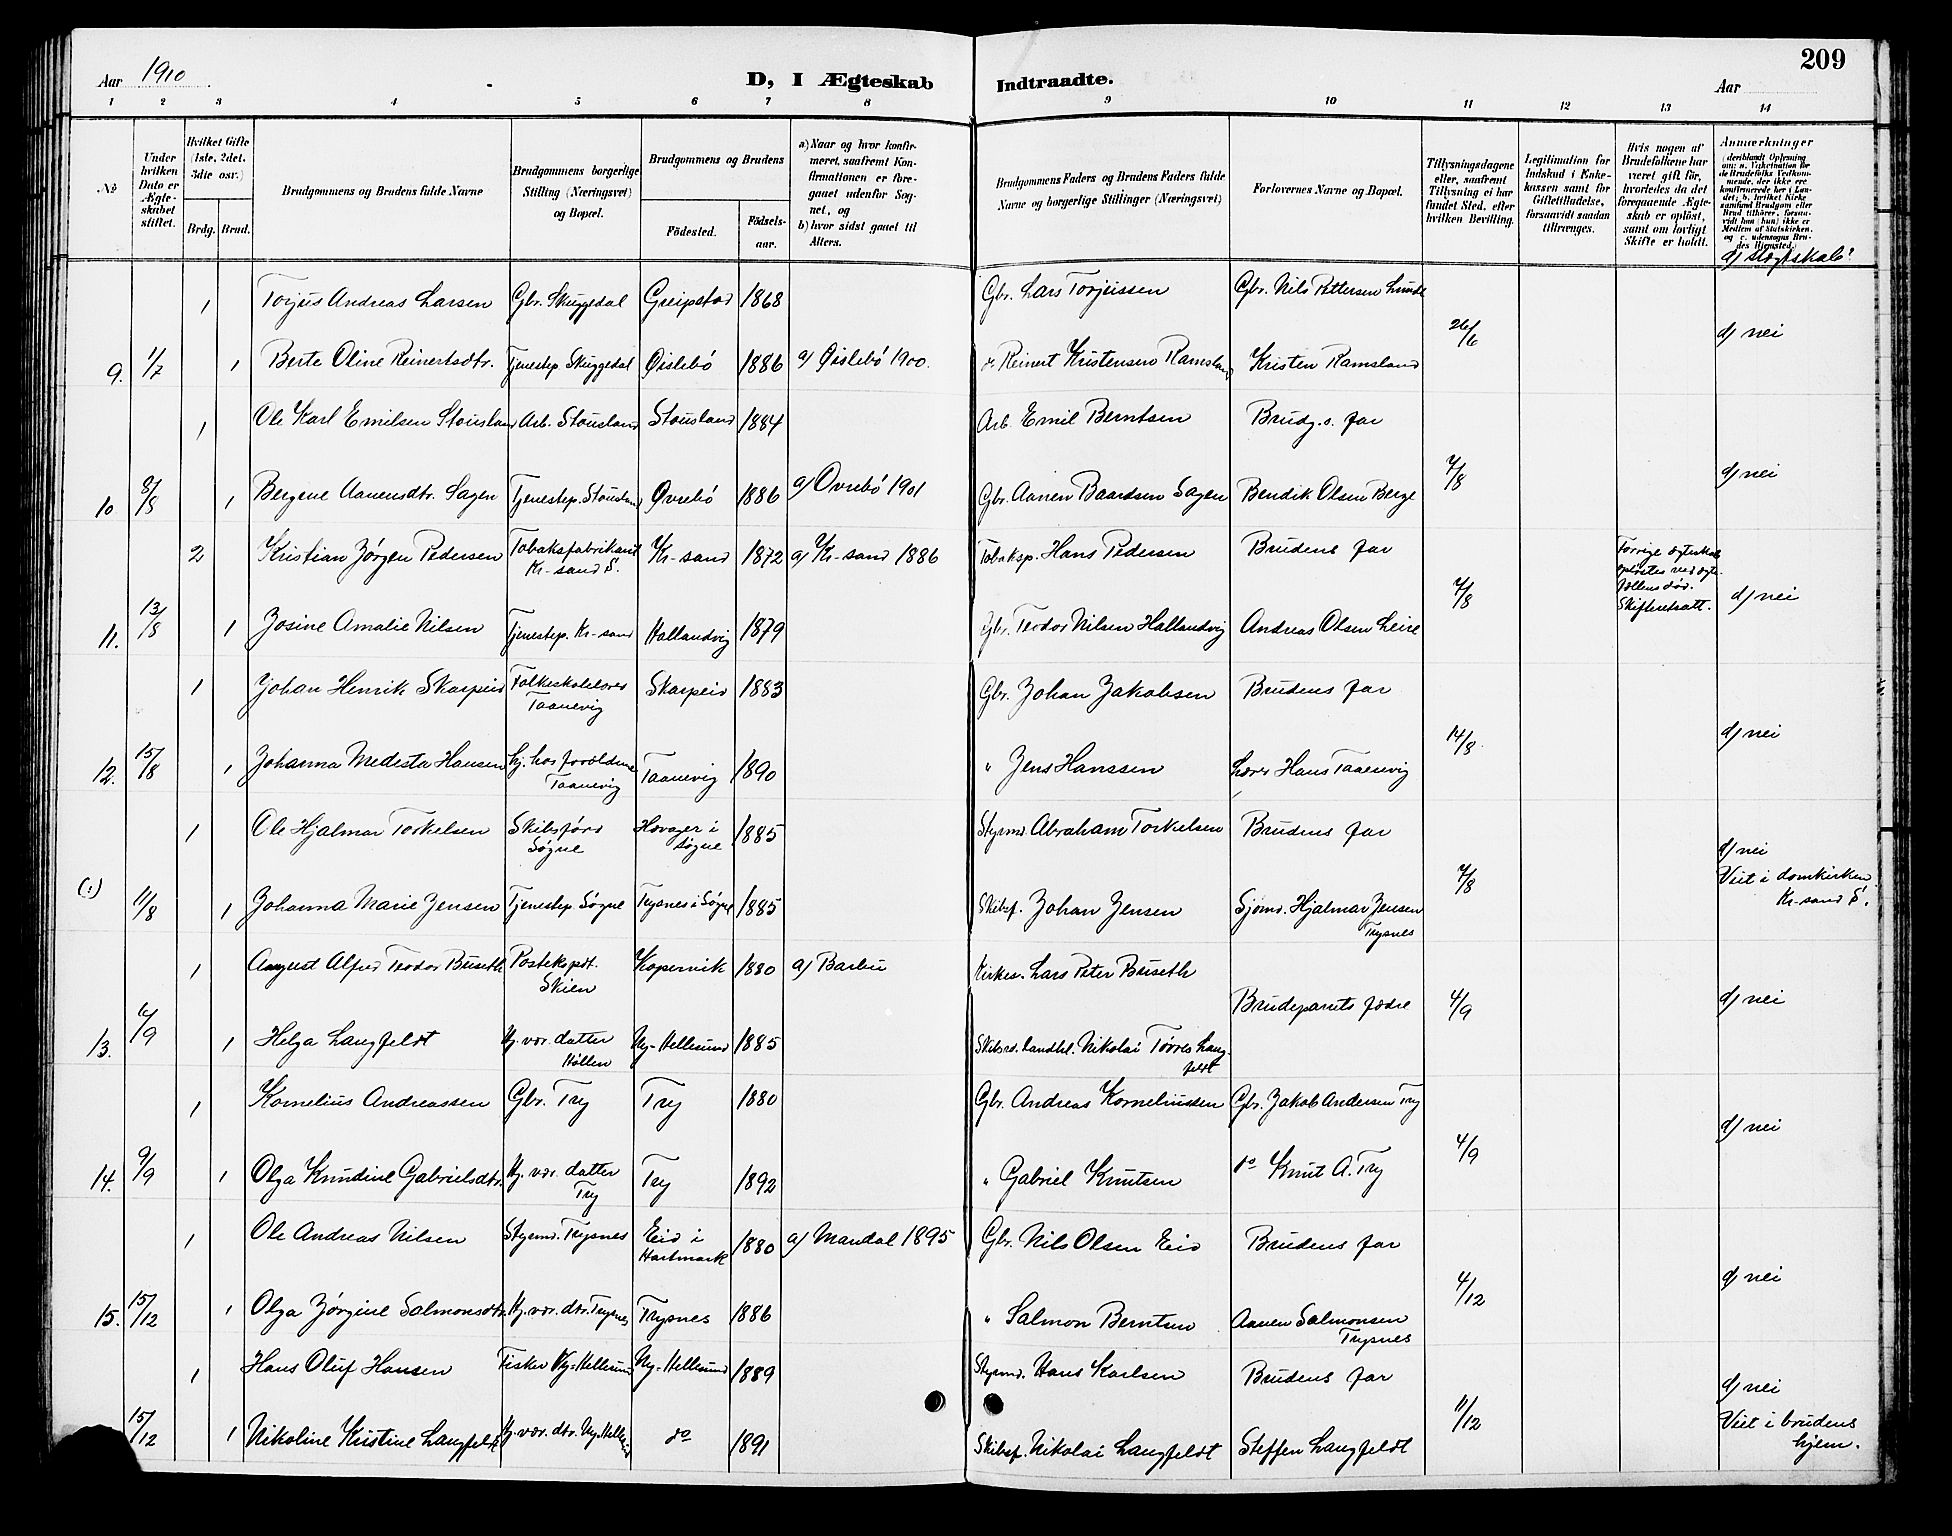 209
Aar 1910
D, I Ægteskab Indtraadte.
Aar
1 2 3 4 5 6 7 8 9 10 11 12 13 14
№
Under hvilken Dato er Ægteskabet stiftet.
Hvilket Gifte (1ste, 2det, 3die osv.)
Brdg. Brud.
Brudgommens og Brudens fulde Navne
Brudgommens borgerlige Stilling (Næringsvei) og Bopæl.
Brudgommens og Brudens
Födested.
Födselsaar.
a) Naar og hvor konfirmeret, saafremt Konfirmationen er foregaaet udenfor Sognet, og
b) hvor sidst gaaet til Alters.
Brudgommens Faders og Brudens Faders fulde Navne og borgerlige Stillinger (Næringsvei)
Forlovernes Navne og Bopæl.
Tillysningsdagene eller, saafremt Tillysning ei har fundet Sted, efter hvilken Bevilling.
Legitimation for Indskud i Enkekassen samt for Giftetilladelse, forsaavidt saadan tiltrænges.
Hvis nogen af Brudefolkene har været gift før, hvorledes da det foregaaende Ægteskab er opløst, samt om lovligt Skifte er holdt.
Anmærkninger
(deriblandt Oplysning om: a. Vakcination for de Brudefolks Vedkommende, der ikke ere konfirmerede her i Landet; b. hvilket Kirkesamfund Brudgom eller Brud tilhører, forsaavidt han (hun) ikke er Medlem af Statskirken, og c. udensogns Brudes Hjemsted.)
d/ slegtskab?
1 Torjus Andreas Larsen Gbr. Skuggedal Greipstad 1868 Gbr. Lars Torjeissen Gbr. Nils Pettersen Lunde
26/6 d/ nei
9. 1/7 1 Berte Oline Reinertsdtr. Tjenestep. Skuggedal Øislebö 1886 a/ Øislebö 1900. Reinert Kristensen Ramsland Kristen Ramsland
1 Ole Karl Emilsen Stousland Arb. Stousland Stousland 1884 Arb. Emil Berntsen Brudg.s. far
7/8 d/ nei
10 8/8 1 Bergene Aanensdtr. Sagen Tjenestep. Stousland Øvrebö 1886 a/ Øvrebö 1901 Gbr. Aanen Baardsen Sagen Bendik Olsen Berge
2 Kristian Jørgen Pedersen Tobaksfabrikant Kr-sand S. Kr-sand 1872 a/ Kr-sand 1886 Tobaksp. Hans Pedersen Brudens far
Forrige egteskab opløstes ved egtefellens død. Skifteratt.
7/8 d/ nei
11. 13/8 1 Josine Amalie Nilsen Tjenestep. Kr-sand Hallandvig 1879 Gbr. Teodor Nilsen Hallandvig Andreas Olsen Leire
1 Johan Henrik Skarpeid Folkeskolelærer Taanevig Skarpeid 1883 Gbr. Johan Jakobsen Brudens far
14/8 d/ nei
12. 15/8 1 Johanna Medesta Hansen hj. hos forældrene Taanevig Taanevig 1890 " Jens Hanssen Lærer Hans Taanevig
1 Ole Hjalmar Torkelsen Skibsfører Søgne Havager i Søgne 1885 Styrmd. Abraham Torkelsen Brudens far
d/ nei
Viet i domkirken Kr-sand S.
(:) 11/8 1 Johanna Marie Jensen Tjenestep Søgne Trysnes i Søgne 1885 Skibsf. Johan Jensen 7/8 Sjømd. Hjalmar Jensen Trysnes
1 August Alfred Teodor Buseth Postekspdt. Skien Kopervik 1880 a/ Barbu Kirkes. Lars Peter Buseth
Brudeparets fædre 4/9 d/ nei
13. 6/9 1 Helga Langfeldt Hj. vær. datter Höllen Ny-Hellesund 1885 Skibsrd. Landhl. Nikolai Tørres Langfeldt
1 Kornelius Andreassen Gbr. Try Try 1880 Gbr. Andreas Korneliussen Gbr. Jakob Andersen Try
4/9 d/ nei
14. 9/9 1 Olga Knudine Gabrielsdtr. Hj. vær. datter Try Try 1892 " Gabriel Knutsen do Knut A. Try
1 Ole Andreas Nilsen Styrmd. Trysnes Eid i Hartmark 1880 a/ Mandal 1895 Gbr. Nils Olsen Eid Brudens far
4/12 d/ nei
15. 15/12 1 Olga Jørgine Salmonsdtr. Hj. vær. dtr. Trysnes Trysnes 1886 " Salmon Berntsen Aanen Salmonsen Trysnes
1 Hans Oluf Hansen Fisker Ny-Hellesund Ny-Hellesund 1889 Styrmd. Hans Karlsen Brudens far
11/12 d/ nei
Viet i brudens hjem.
15/12 1 Nikoline Kristine Langfeldt Hj. vær. dtr. Ny-Hellesund do 1891 Skibsf. Nikolai Langfeldt Steffen Langfeldt